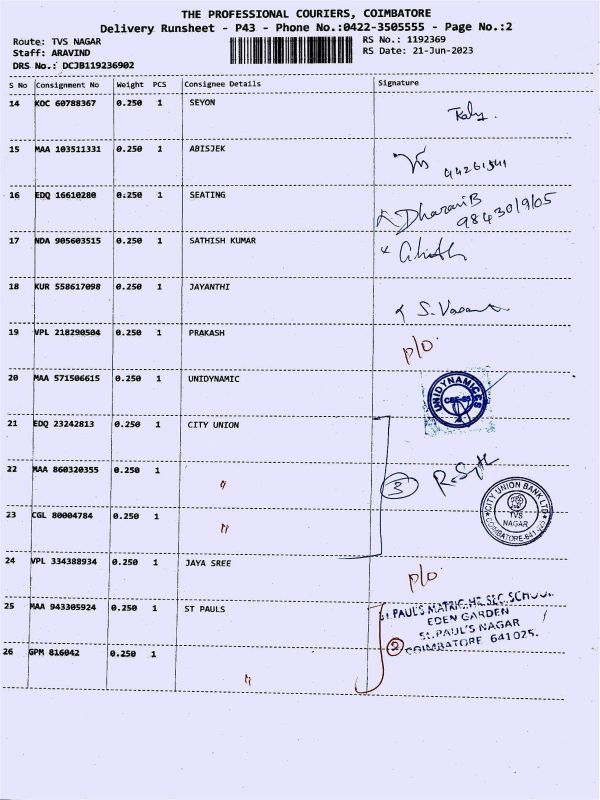 THE PROFESSIONAL COURIERS, COIMBATORE
Delivery Runsheet - P43 - Phone No.:0422-3505555 - Page No.:2
Route: TVS NAGAR
Staff: ARAVIND
DRS No.: DCJB119236902
RS No.: 1192369
RS Date: 21-Jun-2023
S No Consignment No Weight PCS Consignee Details Signature
14 KOC 60788367 0.250 1 SEYON
15 MAA 103511331 0.250 1 ABISJEK
16 EDQ 16610280 0.250 1 SEATING Dharani B
9843019105
17 NDA 905603515 0.250 1 SATHISH KUMAR
18 KUR 558617098 0.250 1 JAYANTHI S.
19 VPL 218290504 0.250 1 PRAKASH P/O
20 MAA 571506615 0.250 1 UNIDYNAMIC UNIDYNAMICES
21 EDQ 23242813 0.250 1 CITY UNION
22 MAA 860320355 0.250 1 〃 3
CITY UNION BANK LTD
TVS
NAGAR
COIMBATORE-641 025
23 CGL 80004784 0.250 1 〃
24 VPL 334388934 0.250 1 JAYA SREE P/O
25 MAA 943305924 0.250 1 ST PAULS
St.PAUL'S MATRIC.HR.SEC.SCHOOL
EDEN GARDEN
St.PAUL'S NAGAR
COIMBATORE 641025.
2
26 GPM 816042 0.250 1 〃